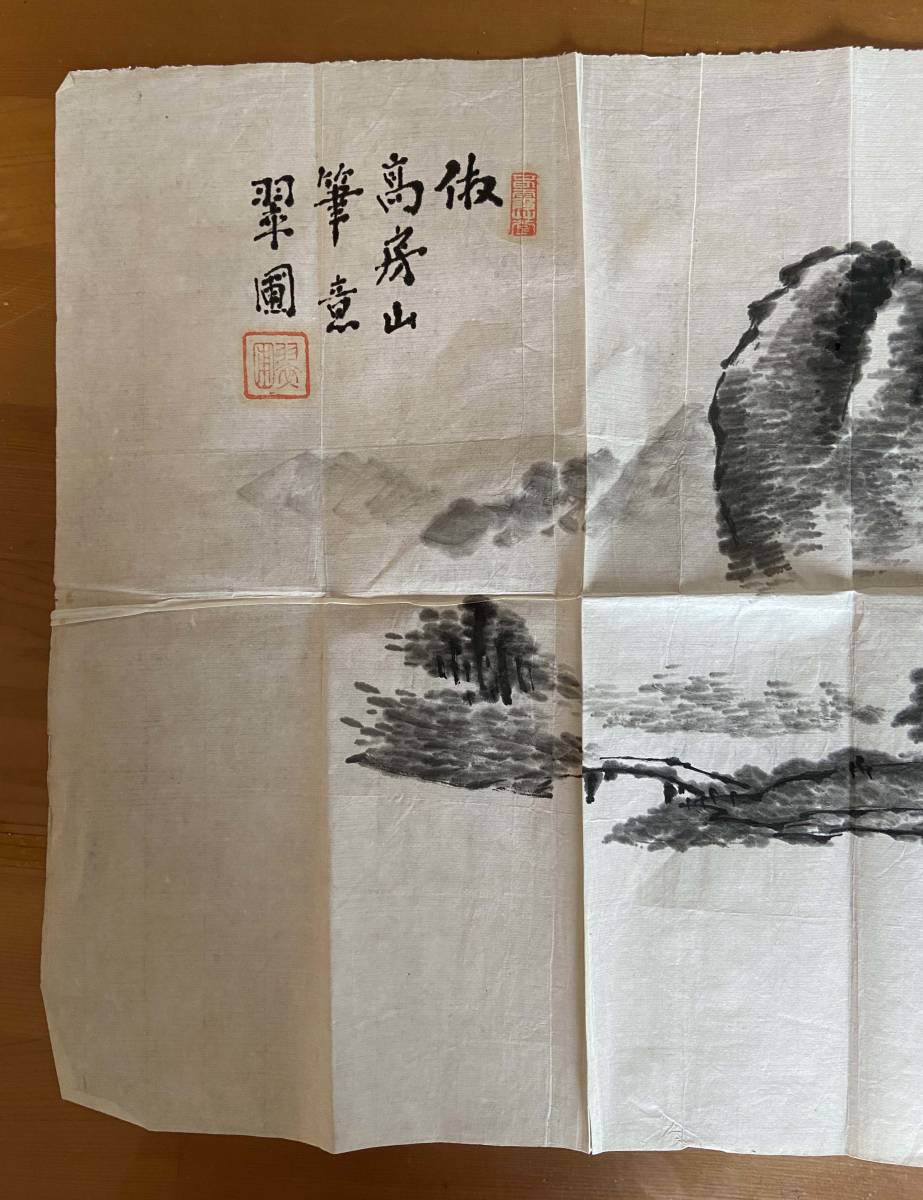 倣
高房山
筆意
翠圃